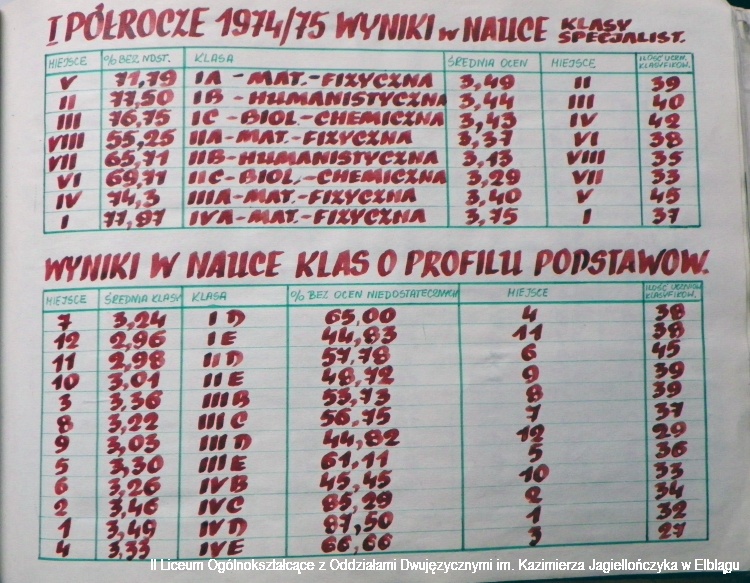 I PÓŁROCZE 1974/75 WYNIKI w NAUCE KLASY SPECJALIST.
MIEJSCE % BEZ NDST. KLASA ŚREDNIA OCEN MIEJSCE ILOŚĆ UCZN. KLASYFIKOW.
V 71,79 IA - MAT.-FIZYCZNA 3,49 II 39
II 77,50 IB - HUMANISTYCZNA 3,44 III 40
III 76,75 IC - BIOL.-CHEMICZNA 3,43 IV 42
VIII 55,25 IIA-MAT.-FIZYCZNA 3,37 VI 38
VII 65,71 IIB-HUMANISTYCZNA 3,13 VIII 35
VI 69,71 IIC-BIOL.-CHEMICZNA 3,29 VII 33
IV 74,3 IIIA-MAT.-FIZYCZNA 3,40 V 45
I 77,87 IVA-MAT.-FIZYCZNA 3,75 I 37
WYNIKI W NAUCE KLAS O PROFILU PODSTAWOW.
MIEJSCE ŚREDNIA KLASY KLASA % BEZ OCEN NIEDOSTATECZNYCH MIEJSCE ILOŚĆ UCZNIÓW KLASYFIKOW.
7 3,24 ID 65,00 4 38
12 2,96 IE 44,83 11 38
11 2,98 IID 57,78 6 45
10 3,01 IIE 48,72 9 39
3 3,36 IIIB 53,73 8 39
8 3,22 IIIC 56,75 7 37
9 3,03 IIID 44,82 12 29
5 3,30 IIIE 61,11 5 36
6 3,26 IVB 45,45 10 33
2 3,46 IVC 85,29 2 34
1 3,49 IVD 87,50 1 32
4 3,33 IVE 66,66 3 27
II Liceum Ogólnokształcące z Oddziałami Dwujęzycznymi im. Kazimierza Jagiellończyka w Elblągu